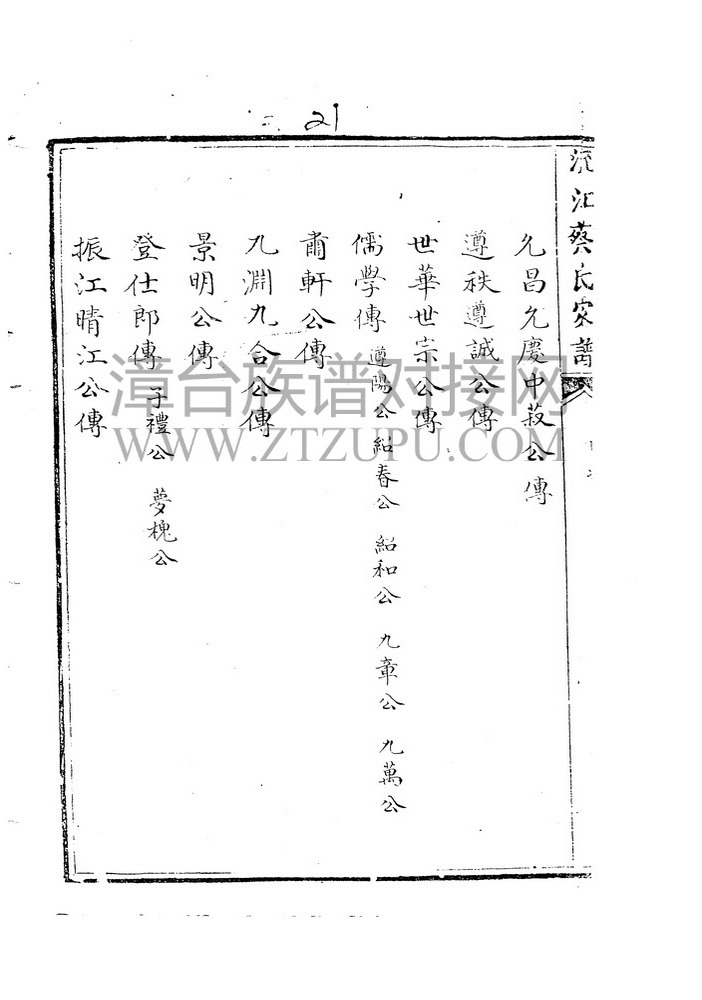 21
沉江蔡氏家譜
允昌允慶中菽公傳
遵秩遵誠公傳
世華世宗公傳
儒學傳 遵陽公 紹春公 紹和公 九章公 九萬公
肅軒公傳
九淵九合公傳
景明公傳
登仕郎傳 子禮公 夢槐公
振江晴江公傳
漳台族谱对接网
WWW.ZTZUPU.COM